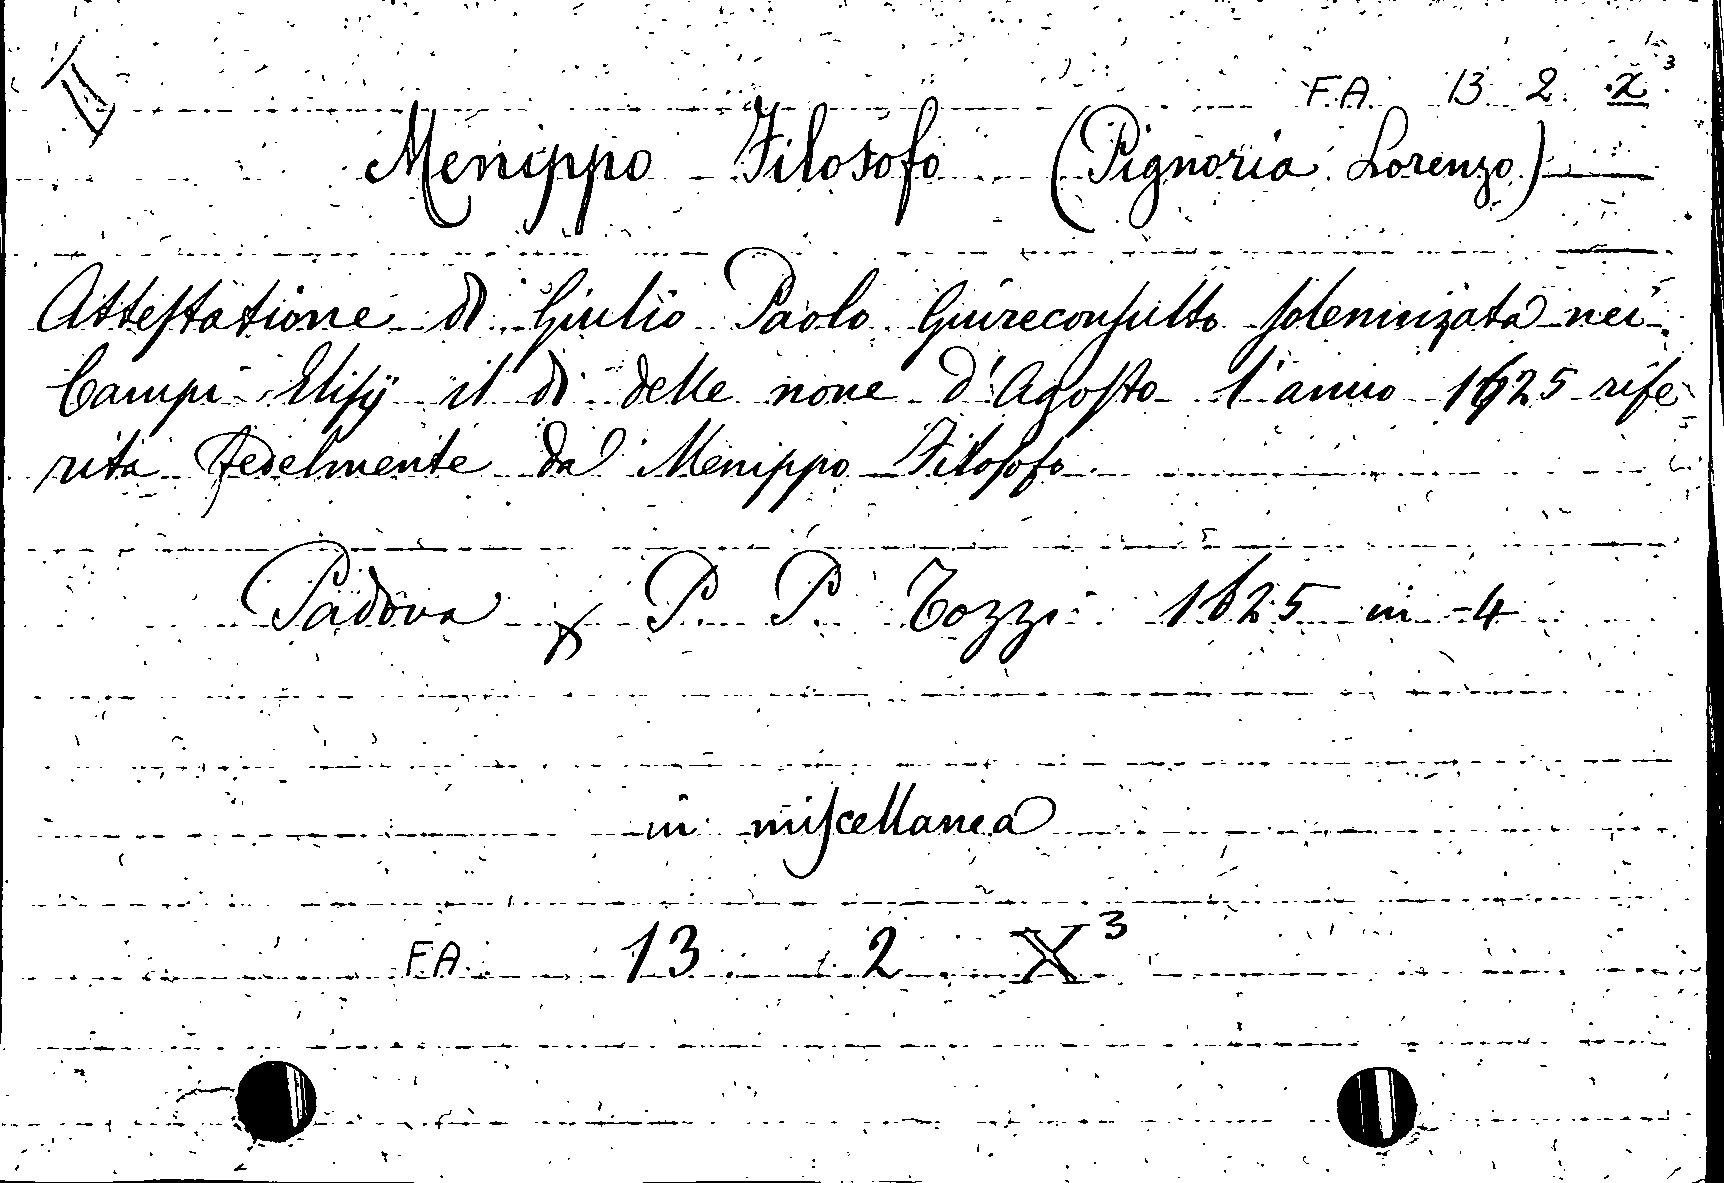 F.A. 13 2 X³
Menippo Filosofo (Pignoria Lorenzo)
Attestatione di Giulio Paolo Giureconsulto solennizata nei
Campi Elisÿ il di delle none d'Agosto l'anno 1625 rife
rita fedelmente da Menippo Filosofo
Padova x P. P. Tozzi 1625 in-4
in miscellanea
F.A. 13 2 X³